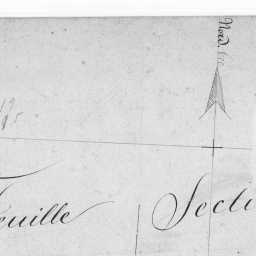 Nord.
Feuille Secti